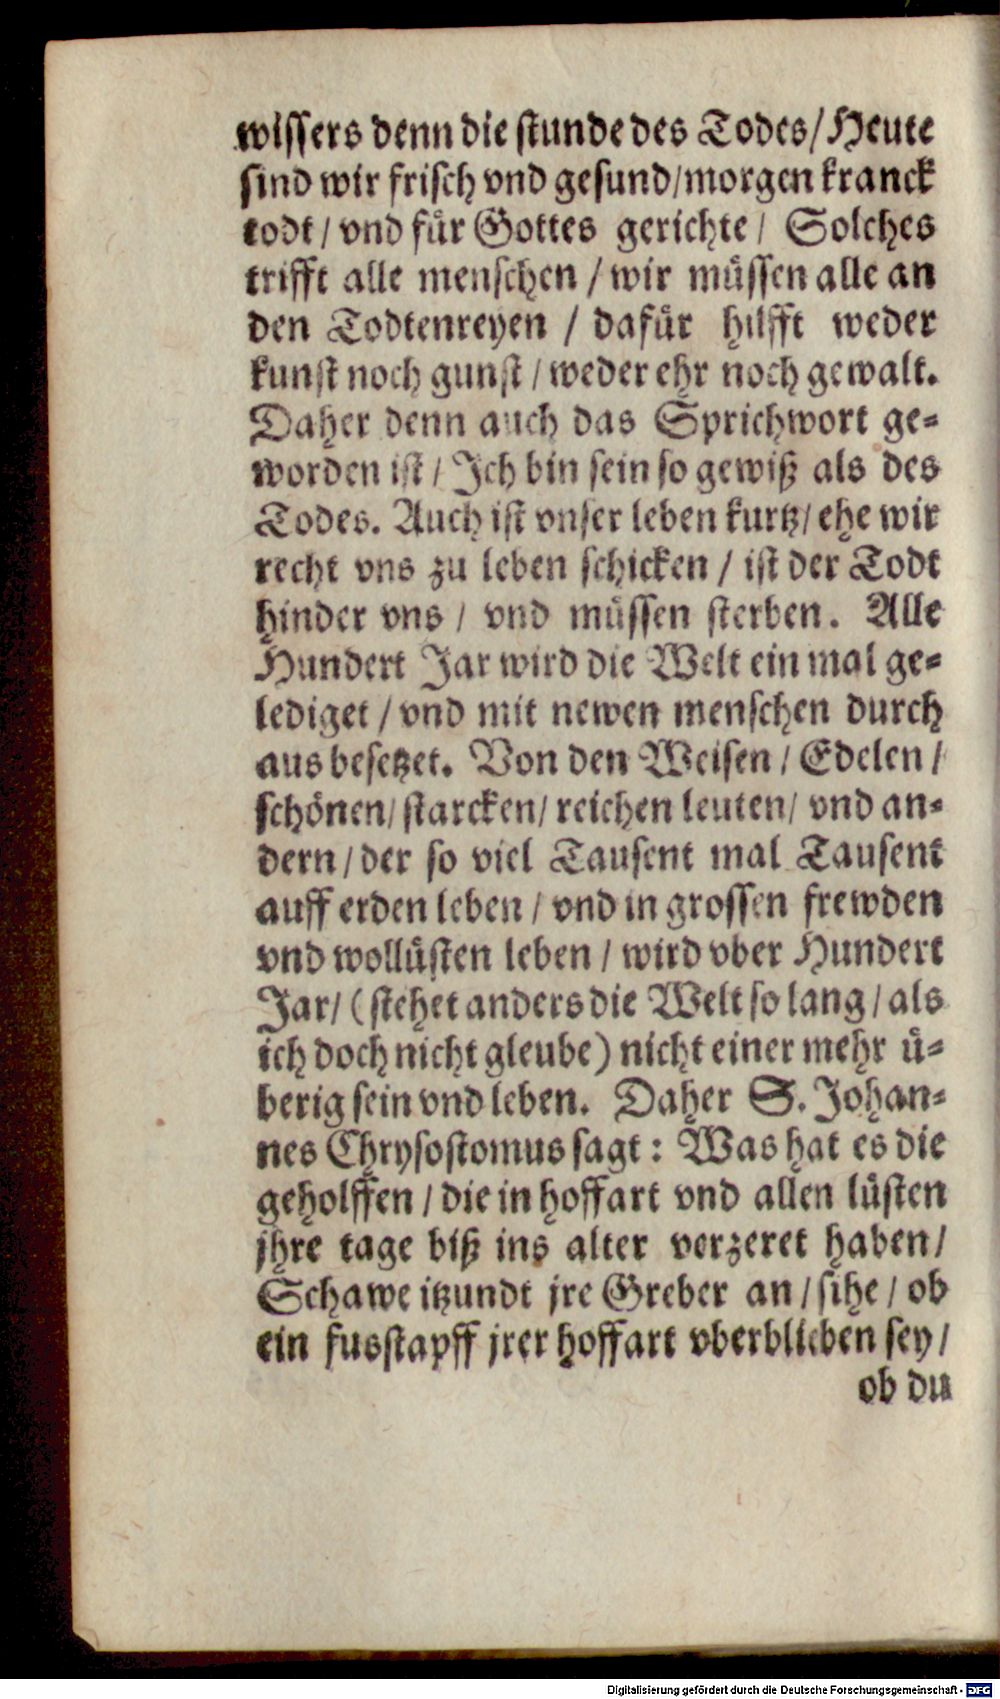 wissers denn die stunde des Todes/ Heute
sind wir frisch vnd gesund/morgen kranck
todt / vnd für Gottes gerichte / Solches
trifft alle menschen / wir müssen alle an
den Todtenreyen / dafür hilfft weder
kunst noch gunst / weder ehr noch gewalt.
Daher denn auch das Sprichwort ge=
worden ist / Ich bin sein so gewiß als des
Todes. Auch ist vnser leben kurtz/ ehe wir
recht vns zu leben schicken / ist der Todt
hinder vns / vnd müssen sterben. Alle
Hundert Jar wird die Welt ein mal ge=
lediget / vnd mit newen menschen durch
aus besetzet. Von den Weisen / Edelen /
schönen/ starcken/ reichen leuten/ vnd an=
dern / der so viel Tausent mal Tausent
auff erden leben / vnd in grossen frewden
vnd wollüsten leben / wird vber Hundert
Jar/ (stehet anders die Welt so lang / als
ich doch nicht gleube) nicht einer mehr ü=
berig sein vnd leben. Daher S. Johan=
nes Chrysostomus sagt : Was hat es die
geholffen / die in hoffart vnd allen lüsten
jhre tage biß ins alter verzeret haben /
Schawe itzundt jre Greber an / sihe / ob
ein fusstapff jrer hoffart vberblieben sey /
ob du
Digitalisierung gefördert durch die Deutsche Forschungsgemeinschaft - DFG